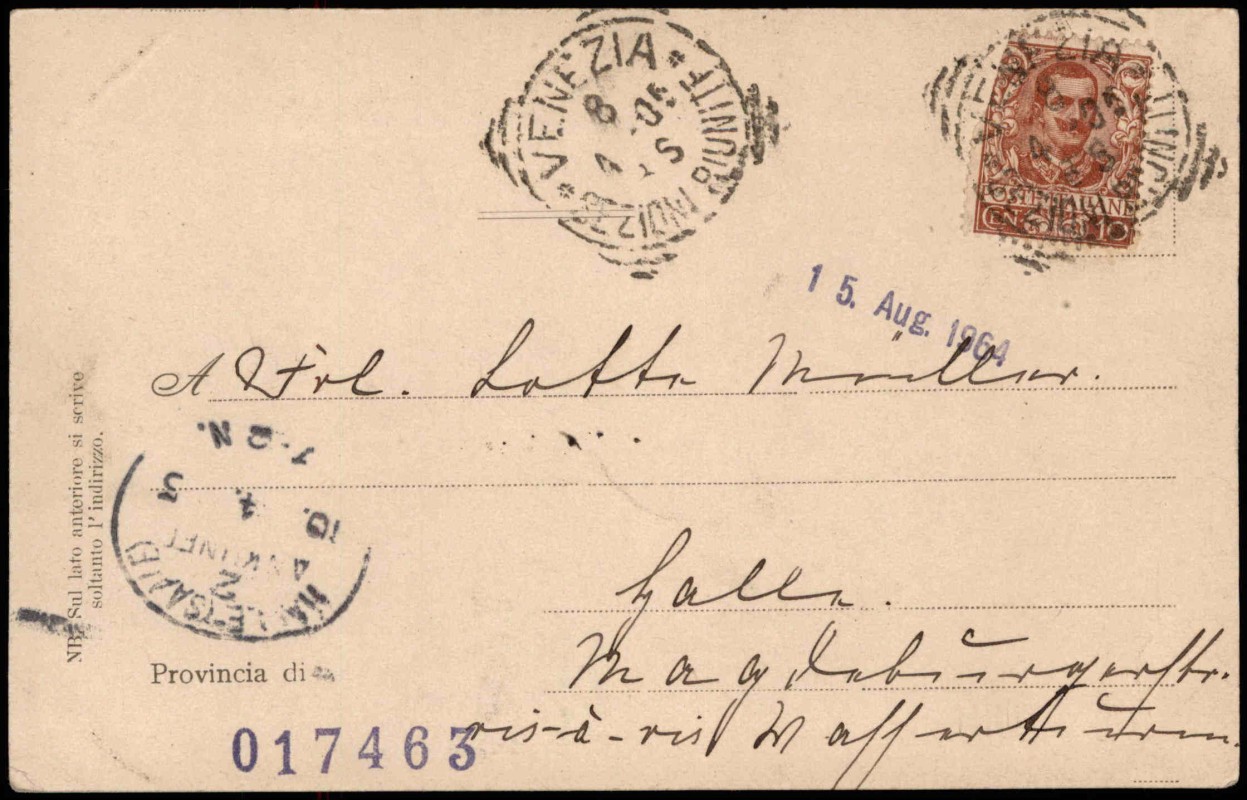 VENEZIA * RIUNITE
8 4 05
VENEZIA
POSTE ITALIANE
15. Aug. 1964
A Frl. Lotte Müller.
Halle.
Magdeburgerstr.
vis-à-vis Wasserthurm.
NB. Sul lato anteriore si scrive
soltanto l' indirizzo.
HALLE (SAALE)
10. 4. 5
1-2 N.
Provincia di
017463